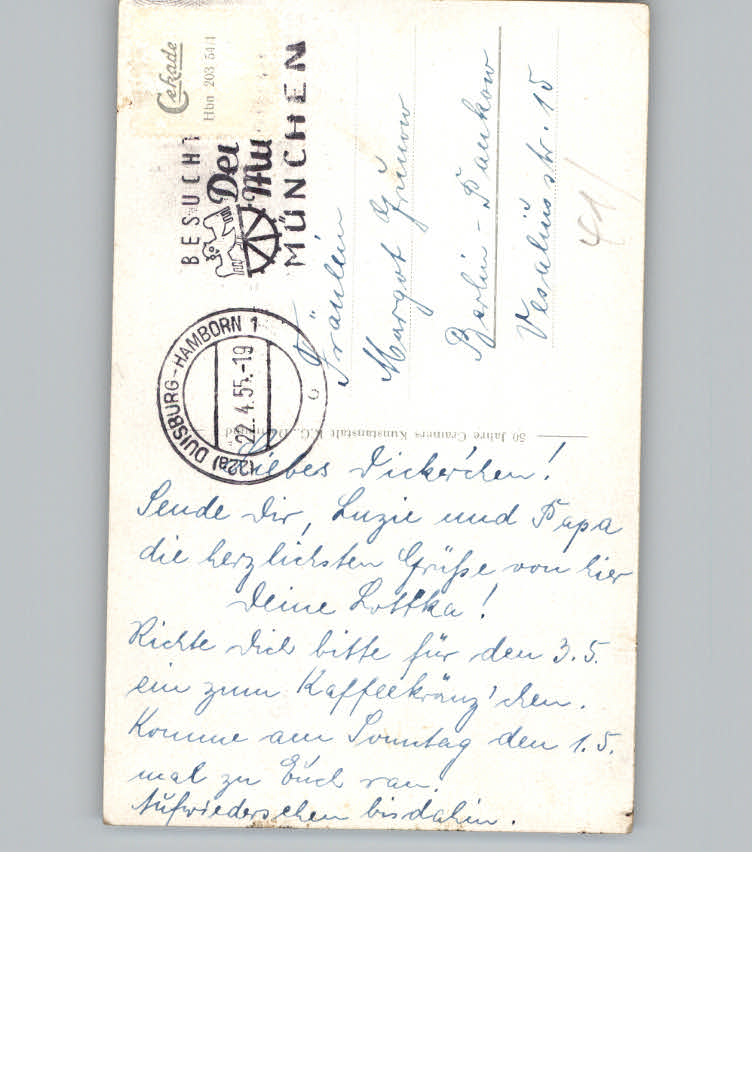 Cekade
Hbn 203 54/1
BESUCHT
Det
Mu
MÜNCHEN
(22a) DUISBURG-HAMBORN 1
22.4.55.-19
Fräulein
Margot Grunow
Berlin - Pankow
Vesaliusstr. 15
41/
50 Jahre Cramers Kunstanstalt K.G., Dortmund
Liebes Dickerchen!
Sende Dir, Luzie und Papa
die herzlichsten Grüße von hier
Deine Lottka!
Richte Dich bitte für den 3.5.
ein zum Kaffeekränz'chen.
Komme am Sonntag den 1.5.
mal zu Euch ran.
Aufwiedersehen bis dahin.